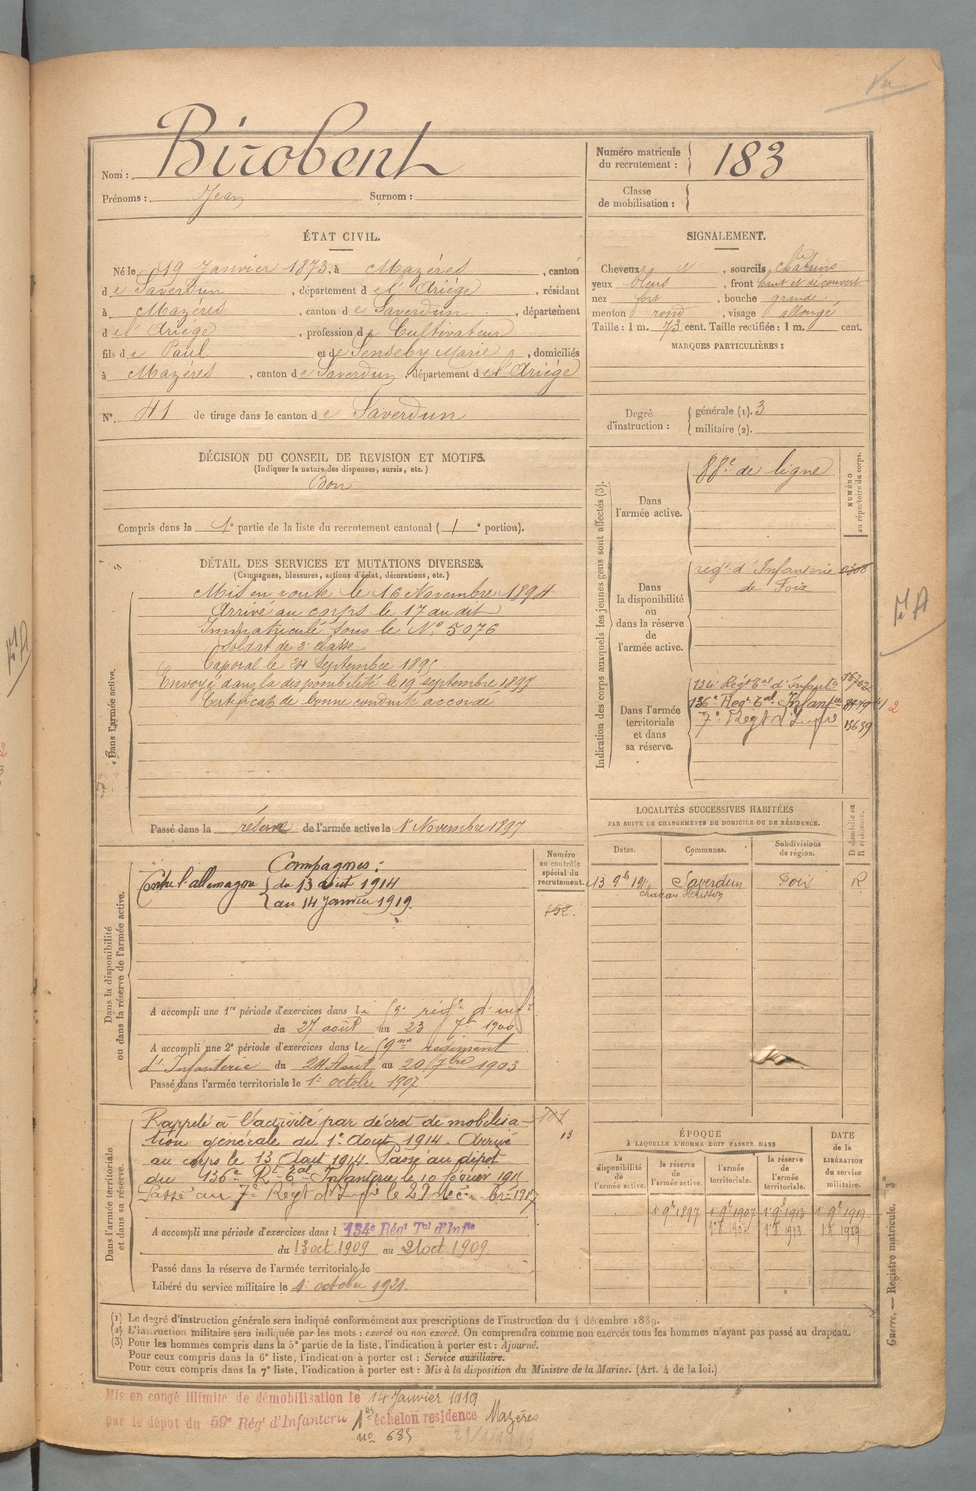 Vu
Nom : Birobent
Prénoms : Jean Surnom :
Numéro matricule du recrutement : 183
Classe de mobilisation :
ÉTAT CIVIL.
Né le 19 Janvier 1873, à Mazéres, canton
de Saverdun, département de l'Ariége, résidant
à Mazéres, canton de Saverdun, département
de l'Ariége, profession de Cultivateur
fils de Paul et de Senseby Marie, domiciliés
à Mazéres, canton de Saverdun, département de l'Ariége
N° 41 de tirage dans le canton de Saverdun
SIGNALEMENT.
Cheveux et, sourcils chatains
yeux bleus, front haut et découvert
nez fort, bouche grande
menton rond, visage allongé
Taille : 1 m. 73 cent. Taille rectifiée : 1 m. cent.
MARQUES PARTICULIÈRES :
Degré d'instruction : générale (1). 3
militaire (2).
DÉCISION DU CONSEIL DE REVISION ET MOTIFS.
(Indiquer la nature des dispenses, sursis, etc.)
Bon
Compris dans la 1e partie de la liste du recrutement cantonal (1e portion).
Indication des corps auxquels les jeunes gens sont affectés (3).
NUMÉRO au répertoire du corps.
Dans l'armée active.
88e de ligne
Dans la disponibilité ou dans la réserve de l'armée active.
régt d'Infanterie
de Foix
Dans l'armée territoriale et dans sa réserve.
134e Régt Tal d'Infant
136e Regt Tal Infant
7e Regt d'Infie 13639
DÉTAIL DES SERVICES ET MUTATIONS DIVERSES.
(Campagnes, blessures, actions d'éclat, décorations, etc.)
Dans l'armée active.
Mis en route le 16 Novembre 1894
Arrivé au corps le 17 au dit
Immatriculé sous le N° 5076
Soldat de 2e classe
Caporal le 24 Septembre 1895
Envoyé dans la disponibilité le 19 septembre 1897
Certificat de bonne conduite accordé
Passé dans la réserve de l'armée active le 1 Novembre 1897
FA
LOCALITÉS SUCCESSIVES HABITÉES
PAR SUITE DE CHANGEMENTS DE DOMICILE OU DE RÉSIDENCE.
Dates. Communes. Subdivisions de région. D domicile ou R résidence.
13 9b Saverdun Foix R
Dans la disponibilité ou dans la réserve de l'armée active.
Numéro au contrôle spécial du recrutement.
Campagnes :
Contre l'allemagne du 13 août 1914
au 14 Janvier 1919
A accompli une 1re période d'exercices dans le régt d'inf
du 27 août au 23 7bre 1900
A accompli une 2e période d'exercices dans le régiment
d'Infanterie du 24 Août au 20 7bre 1903
Passé dans l'armée territoriale le 1er octobre 1907
Dans l'armée territoriale et dans sa réserve.
Rappelé à l'activité par décret de mobilisa-
tion générale du 1er Aout 1914. Arrivé
au corps le 13 Aout 1914. Passé au dépot
du 136e Rt Tal Infanterie le 10 février 191
Passé au 7e Regt d'Infie le 29 décbre 1917
A accompli une période d'exercices dans l 134e Régt Tal d'Infie
du 13 oct 1909 au 21 oct 1909
Passé dans la réserve de l'armée territoriale le
Libéré du service militaire le 1 octobre 1921
ÉPOQUE
À LAQUELLE L'HOMME DOIT PASSER DANS
la disponibilité de l'armée active. la réserve de l'armée active. l'armée territoriale. la réserve de l'armée territoriale.
DATE de la LIBÉRATION du service militaire.
1 9b 1897 1 9b 1907 1 9b 1913 1 9b 1919
Guerre. — Registre matricule.
(1) Le degré d'instruction générale sera indiqué conformément aux prescriptions de l'instruction du 4 décembre 1889.
(2) L'instruction militaire sera indiquée par les mots : exercé ou non exercé. On comprendra comme non exercés tous les hommes n'ayant pas passé au drapeau.
(3) Pour les hommes compris dans la 5e partie de la liste, l'indication à porter est : Ajourné.
Pour ceux compris dans la 6e liste, l'indication à porter est : Service auxiliaire.
Pour ceux compris dans la 7e liste, l'indication à porter est : Mis à la disposition du Ministre de la Marine. (Art. 4 de la loi.)
Mis en congé illimité de démobilisation le 14 Janvier 1919
par le dépot du 59e Régt d'Infanterie 1er échelon residence Mazéres
no 685